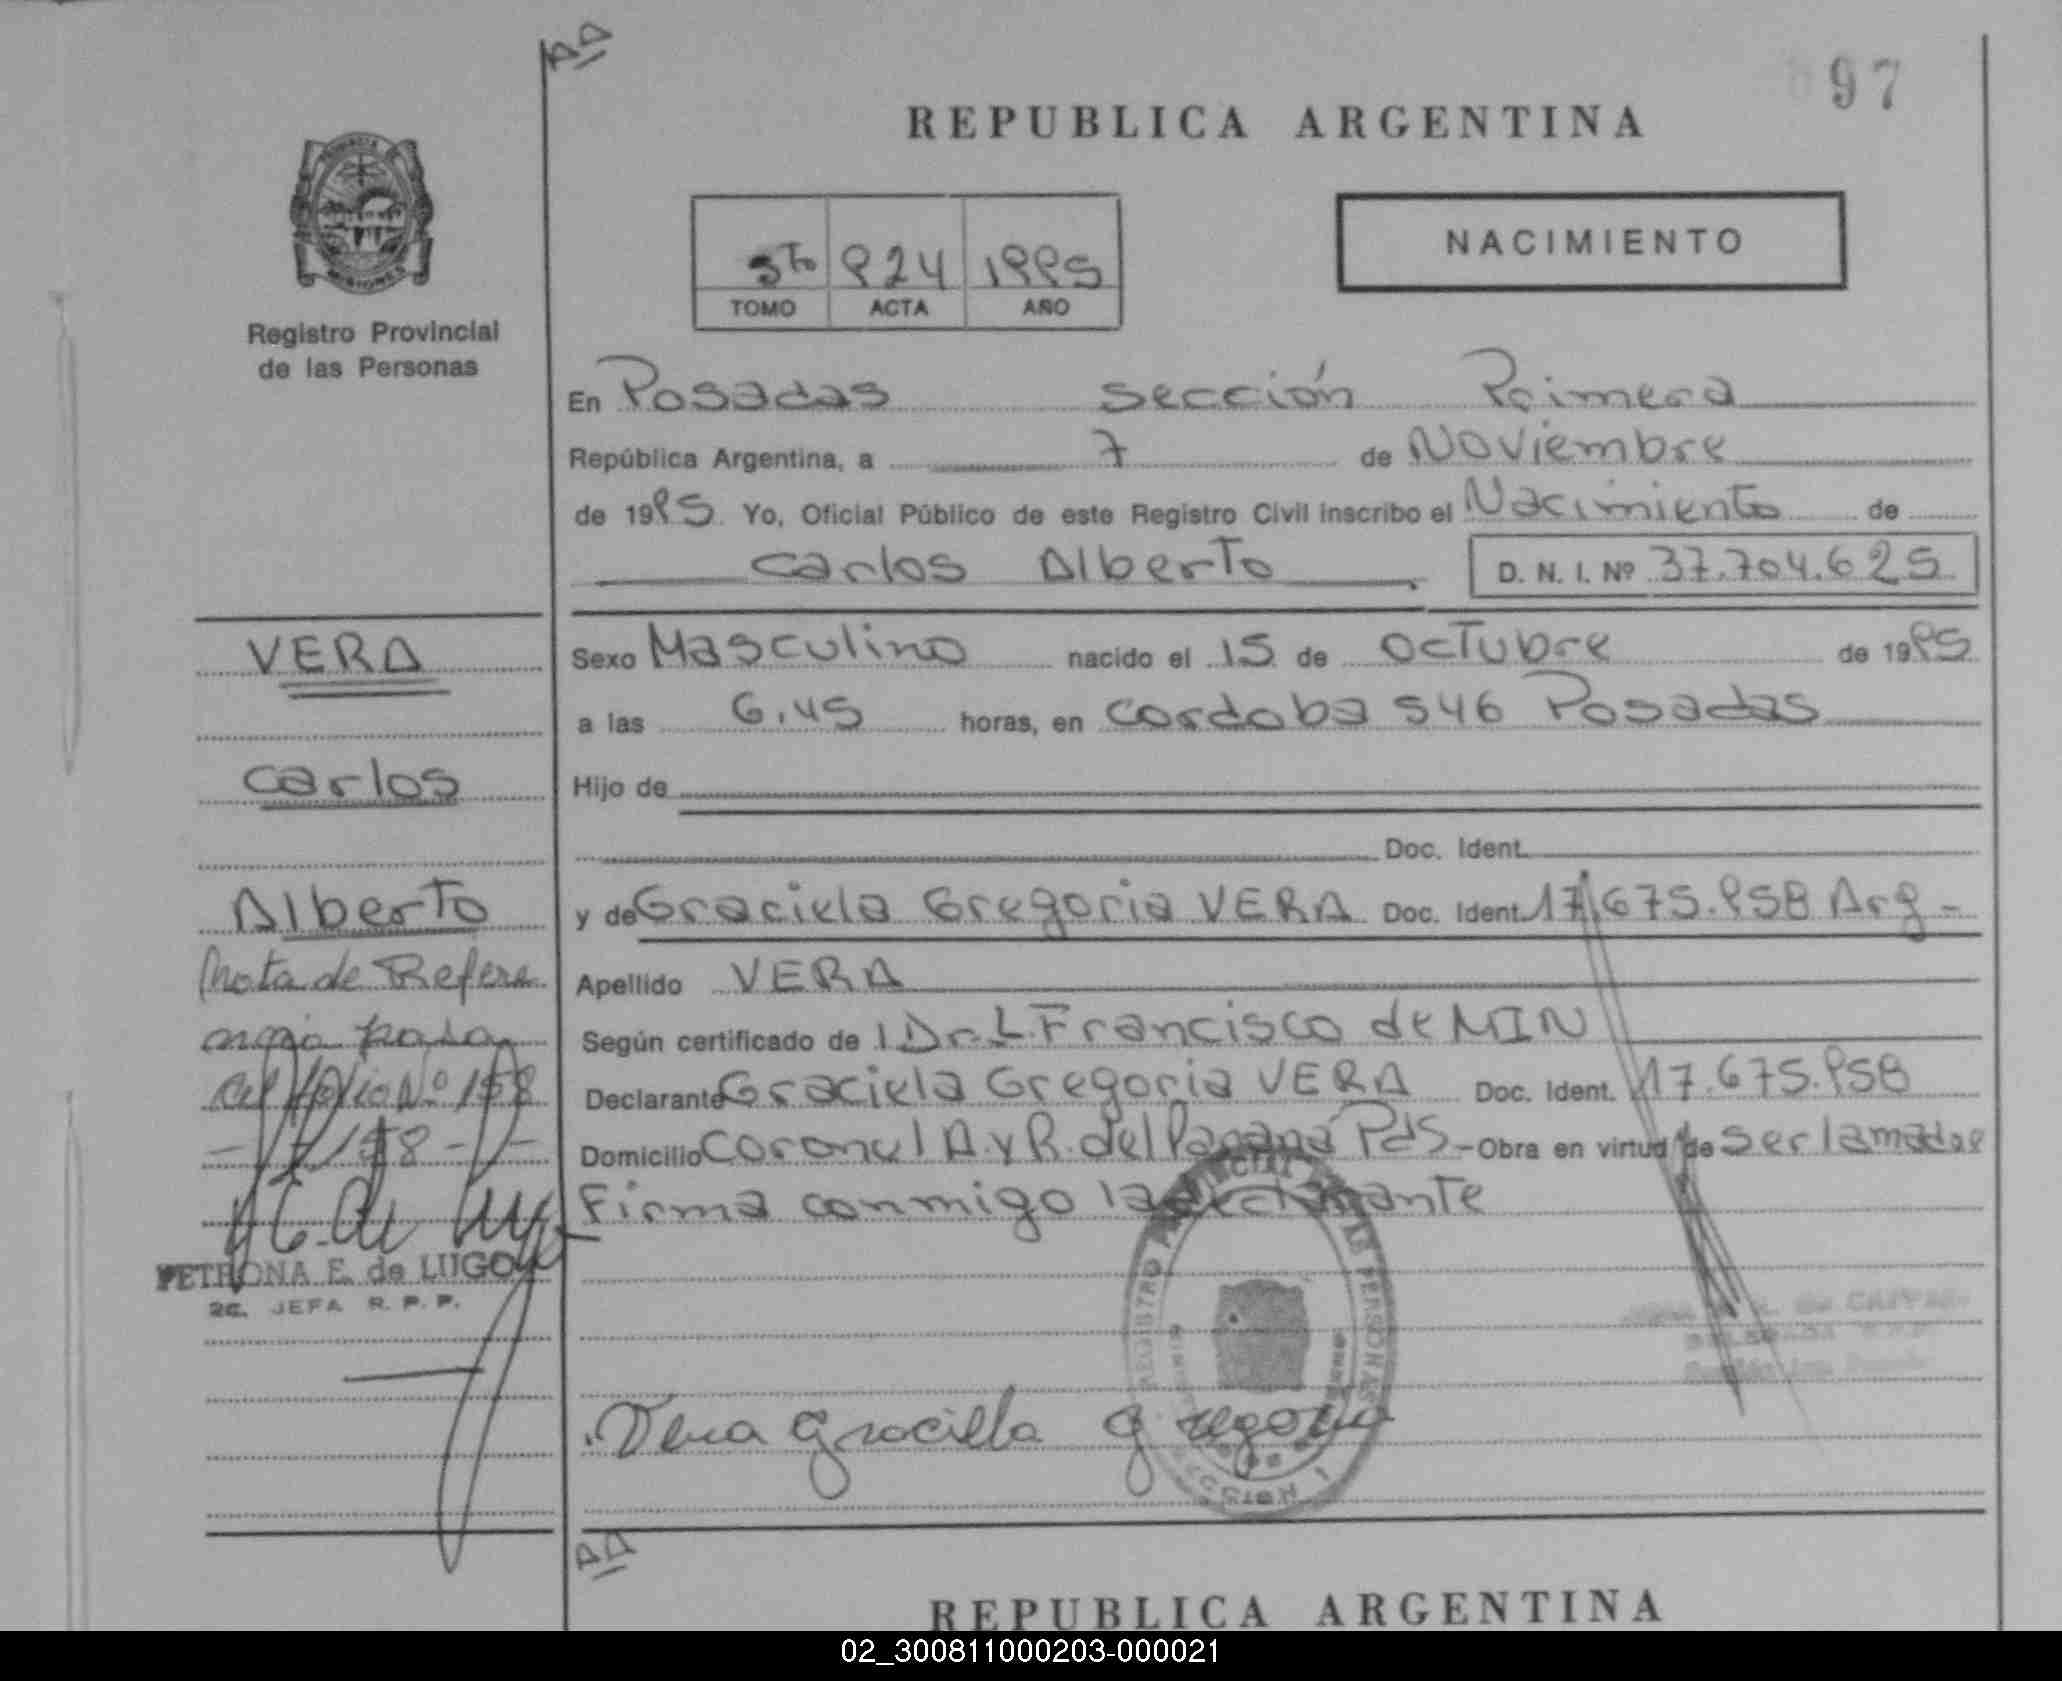 097
REPUBLICA ARGENTINA
NACIMIENTO
5to 924 1995
TOMO ACTA AÑO
Registro Provincial
de las Personas
En Posadas sección Primera
República Argentina, a 7 de Noviembre
de 1995 Yo, Oficial Público de este Registro Civil inscribo el Nacimiento de
Carlos Alberto D. N. I. Nº 37.704.625
VERA
Carlos
Alberto
Nota de Refere
ncia pasa
al folio Nº 158
- 158 -
PETRONA E. de LUGO
2C. JEFA R. P. P.
Sexo Masculino nacido el 15 de octubre de 1995
a las 6.45 horas, en cordoba 546 Posadas
Hijo de
Doc. Ident.
y de Graciela Gregoria VERA Doc. Ident. 17.675.958 Arg-
Apellido VERA
Según certificado de Dr. L. Francisco de MIN
Declarante Graciela Gregoria VERA Doc. Ident. 17.675.958
Domicilio Coronel A. y R. del Paraná Pds- Obra en virtud de ser la madre
Firma conmigo la declarante
REGISTRO PROVINCIAL DE LAS PERSONAS
Vera Graciela Gregoria
REPUBLICA ARGENTINA
02_300811000203-000021